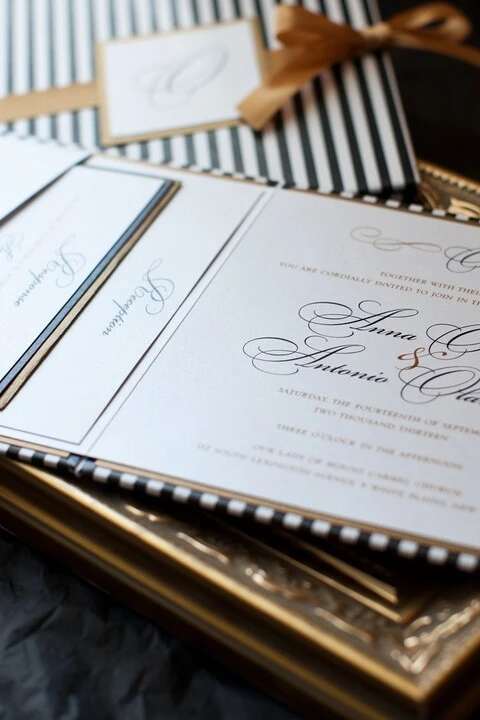 Response
Reception
TOGETHER WITH
YOU ARE CORDIALLY INVITED TO JOIN IN
Anna
&
Antonio
SATURDAY, THE FOURTEENTH OF
TWO THOUSAND THIRTEEN
THREE O'CLOCK IN THE AFTERNOON
OUR LADY OF MOUNT CARMEL CHURCH
SOUTH LEXINGTON AVENUE WHITE PLAINS, NEW